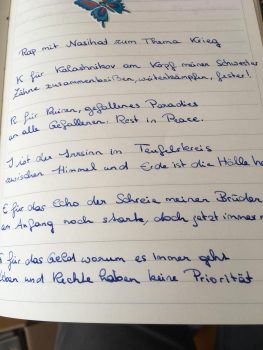 Rap mit Nasihat zum Thema Krieg
K für Kalashnikov am Kopf meiner Schwester
Zähne zusammenbeißen, weiterkämpfen, fester!
R für Ruinen, gefallenes Paradies
an alle Gefallenen. Rest in Peace.
I ist der Irrsinn im Teufelskreis
zwischen Himmel und Erde ist die Hölle
E für das Echo der Schreie meiner Brüder
Anfang noch stark, doch jetzt immer
für das Geld warum es immer geht
und Rechte haben keine Priorität